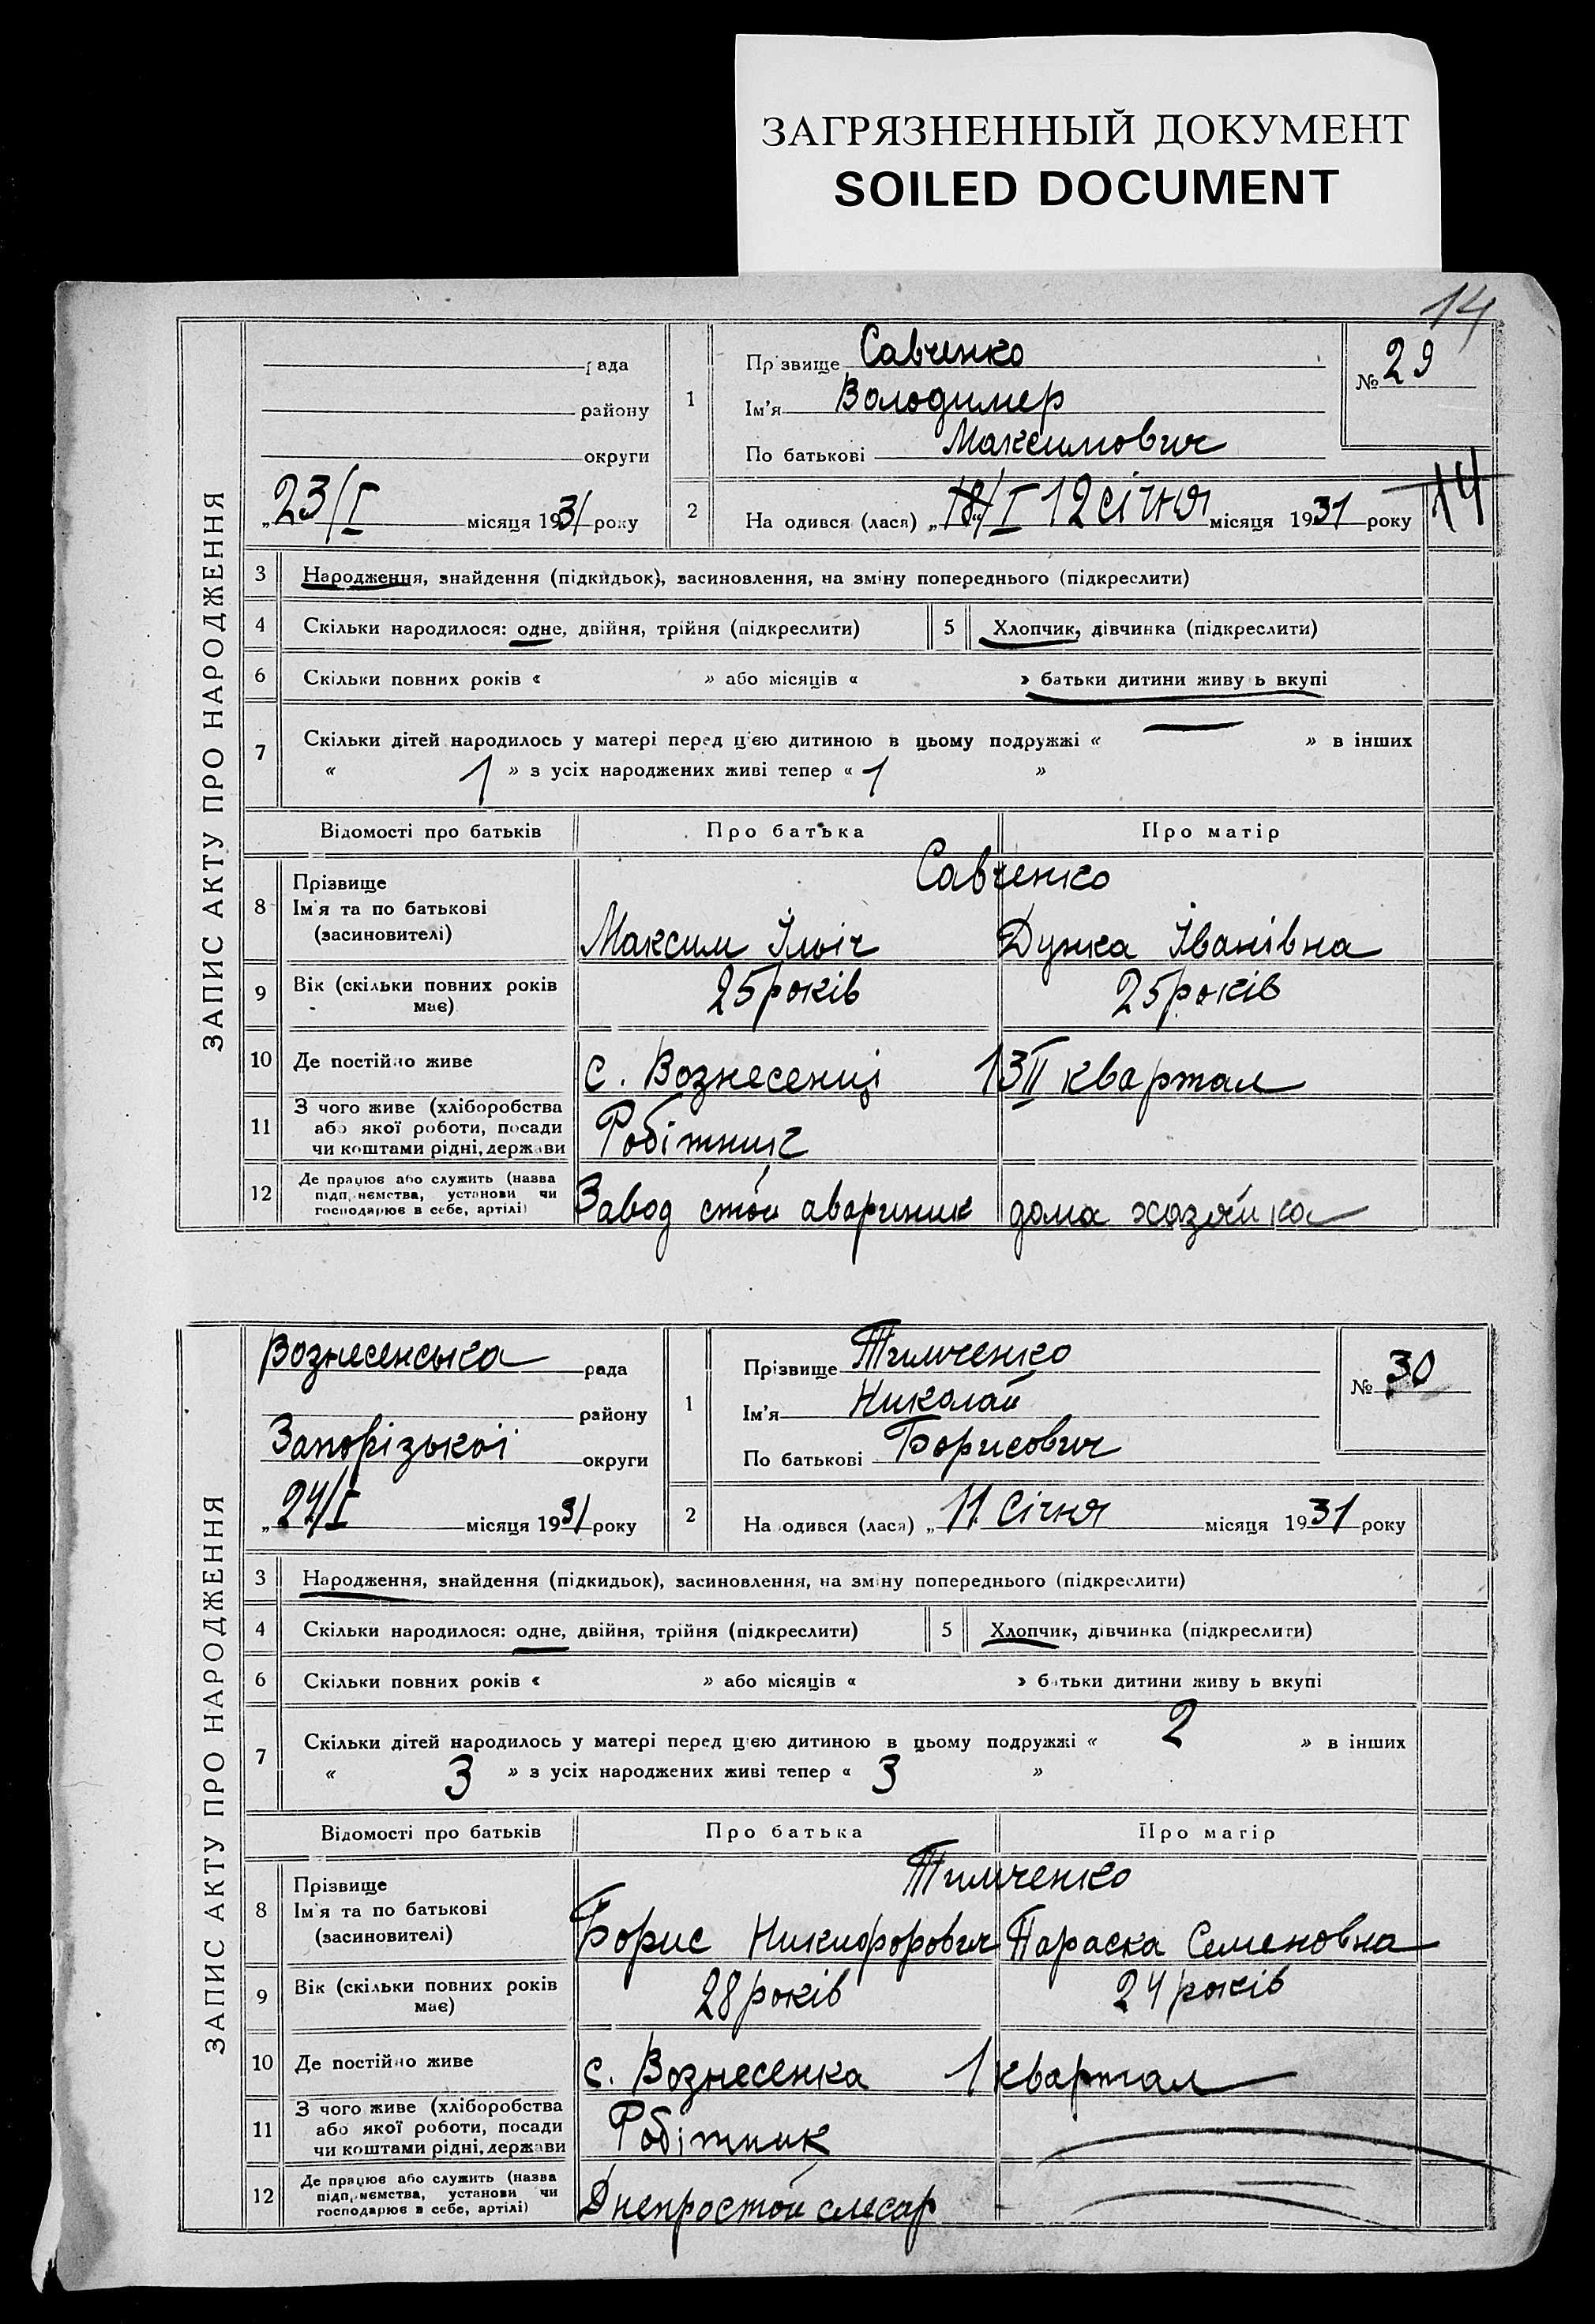 ЗАГРЯЗНЕННЫЙ ДОКУМЕНТ
SOILED DOCUMENT
14
ЗАПИС АКТУ ПРО НАРОДЖЕННЯ
рада
району
округи
„23/I місяця 1931 року
1
Прізвище Савченко
Ім'я Володимер
По батькові Максимович
№ 29
2
На одився (лася) „18/I 12 січня місяця 1931 року
14
3 Народження, знайдення (підкидьок), засиновлення, на зміну попереднього (підкреслити)
4 Скільки народилося: одне, двійня, трійня (підкреслити) 5 Хлопчик, дівчинка (підкреслити)
6 Скільки повних років « » або місяців « » батьки дитини живу ь вкупі
7 Скільки дітей народилось у матері перед цією дитиною в цьому подружжі « — » в інших
« 1 » з усіх народжених живі тепер « 1 »
Відомості про батьків Про батька Про матір
8 Прізвище
Ім'я та по батькові
(засиновителі)
Савченко
Максим Ільіч Дунка Іванівна
9 Вік (скільки повних років
має)
25 років 25 років
10 Де постійно живе с. Вознесенці 13 II квартал
11 З чого живе (хліборобства
або якої роботи, посади
чи коштами рідні, держави
Робітник
12 Де працює або служить (назва
підп. ємства, установи чи
господарює в себе, артілі)
Завод строй аварийник дома хазяйка
ЗАПИС АКТУ ПРО НАРОДЖЕННЯ
Вознесенська рада
району
Запорізькоі округи
„24/I місяця 1931 року
1
Прізвище Тимченко
Ім'я Николай
По батькові Борисович
№ 30
2
На одився (лася) „11 Січня місяця 1931 року
3 Народження, знайдення (підкидьок), засиновлення, на зміну попереднього (підкреслити)
4 Скільки народилося: одне, двійня, трійня (підкреслити) 5 Хлопчик, дівчинка (підкреслити)
6 Скільки повних років « » або місяців « » батьки дитини живу ь вкупі
7 Скільки дітей народилось у матері перед цією дитиною в цьому подружжі « 2 » в інших
« 3 » з усіх народжених живі тепер « 3 »
Відомості про батьків Про батька Про матір
8 Прізвище
Ім'я та по батькові
(засиновителі)
Тимченко
Борис Никифорович Параска Семеновна
9 Вік (скільки повних років
має)
28 років 24 років
10 Де постійно живе с. Вознесенка 1 квартал
11 З чого живе (хліборобства
або якої роботи, посади
чи коштами рідні, держави
Робітник
12 Де працює або служить (назва
підп. ємства, установи чи
господарює в себе, артілі)
Днепростой слесар